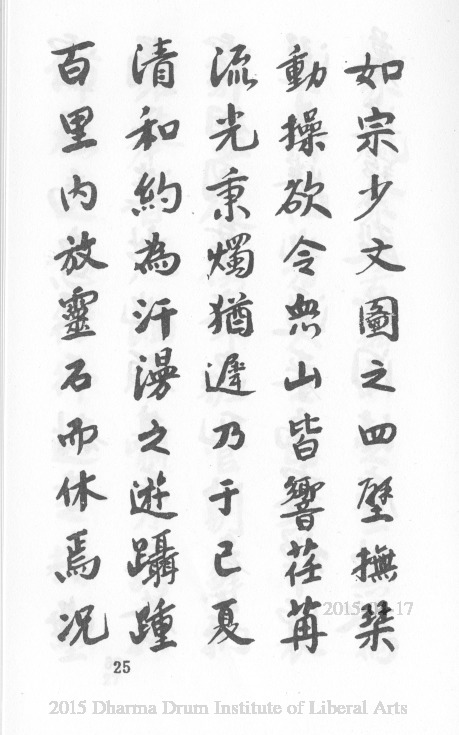 如宗少文圖之四壁撫琴
動操欲令眾山皆響荏苒
流光秉燭猶遲乃于已夏
清和約為汗漫之遊躡踵
百里內放靈石而休焉况
25
2015 Dharma Drum Institute of Liberal Arts